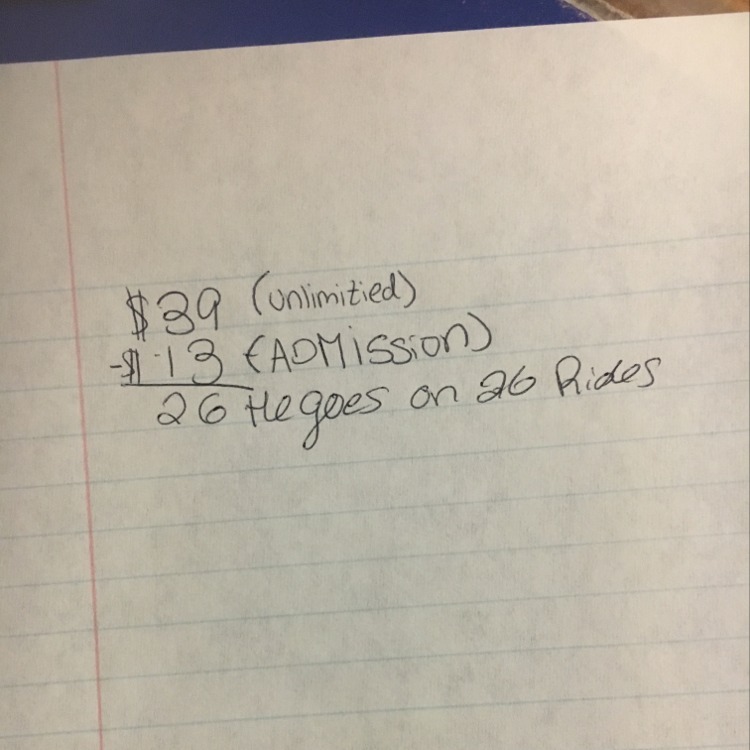 $39 (Unlimitied)
-$13 (ADMission)
26 He goes on 26 Rides